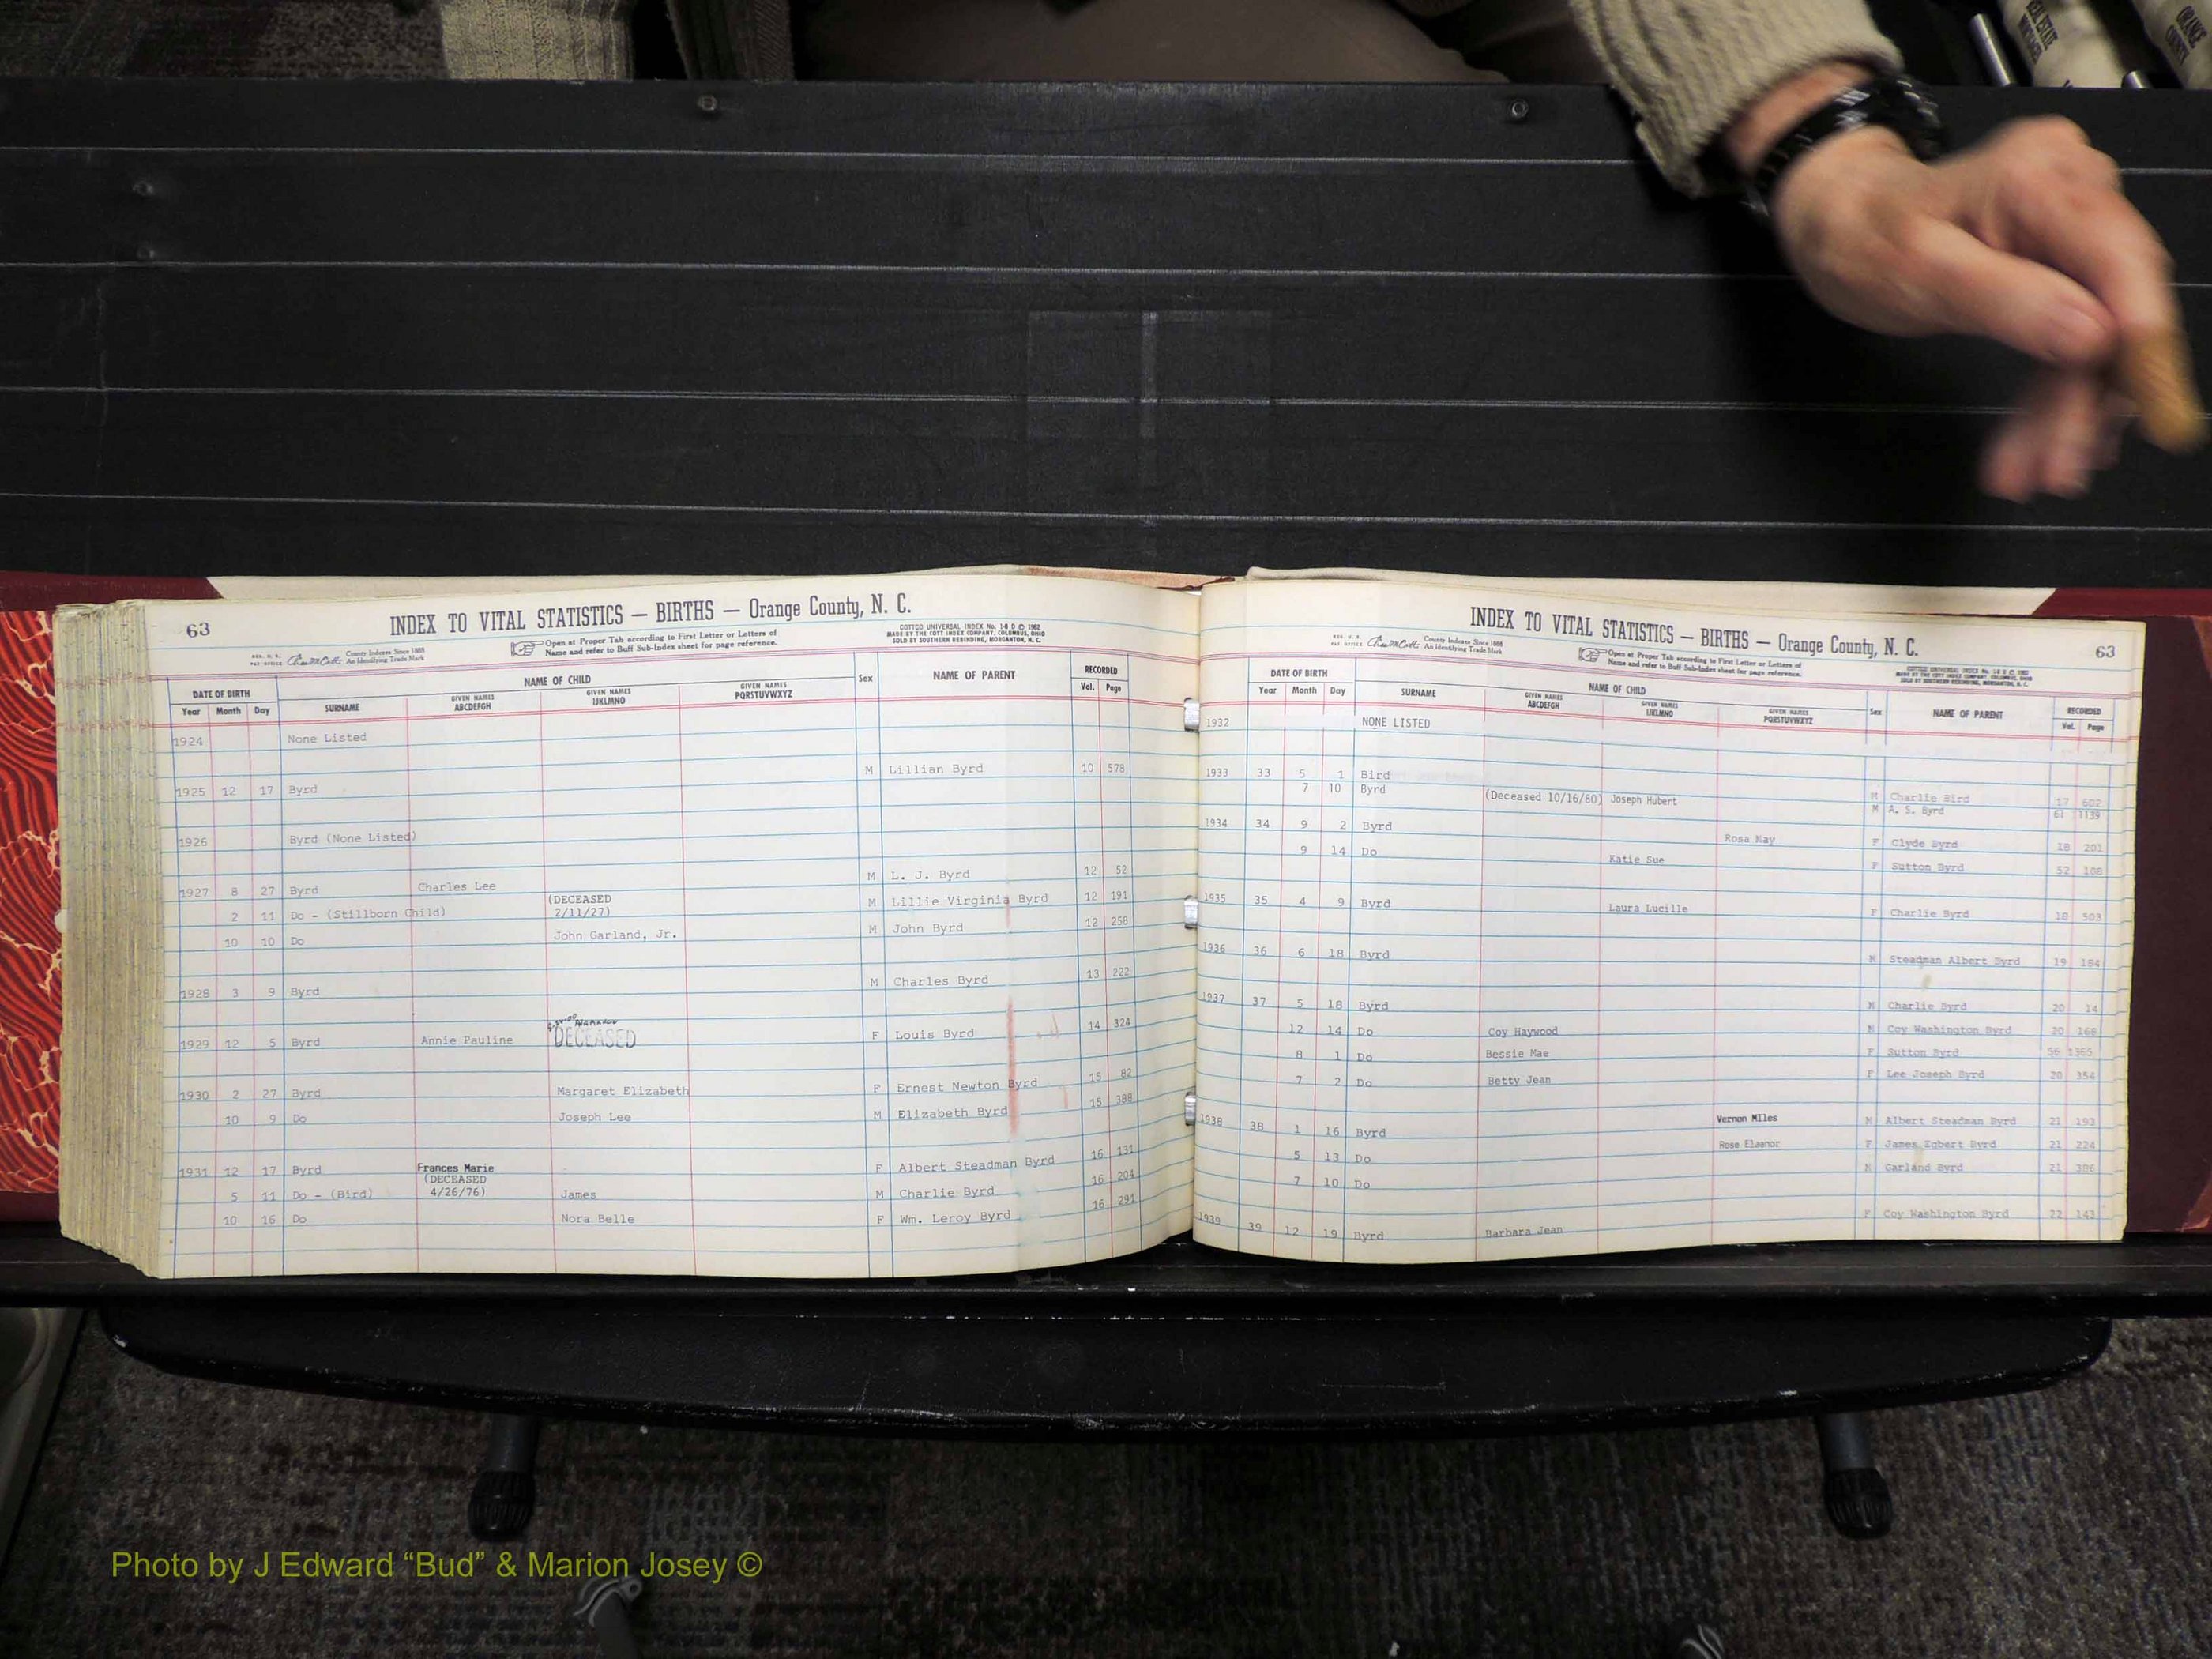 REAL ESTATE
ORANGE
COUNTY
63
INDEX TO VITAL STATISTICS — BIRTHS — Orange County, N. C.
REG. U. S.
PAT. OFFICE
County Indexes Since 1888
An Identifying Trade Mark
Open at Proper Tab according to First Letter or Letters of
Name and refer to Buff Sub-Index sheet for page reference.
COTTCO UNIVERSAL INDEX No. 14 D © 1962
MADE BY THE COTT INDEX COMPANY, COLUMBUS, OHIO
SOLD BY SOUTHERN REBINDING, MORGANTON, N. C.
DATE OF BIRTH NAME OF CHILD Sex NAME OF PARENT RECORDED
Year Month Day SURNAME GIVEN NAMES ABCDEFGH GIVEN NAMES IJKLMNO GIVEN NAMES PQRSTUVWXYZ Vol. Page
1924 None Listed
1925 12 17 Byrd M Lillian Byrd 10 578
1926 Byrd (None Listed)
1927 8 27 Byrd Charles Lee M L. J. Byrd 12 52
2 11 Do - (Stillborn Child) (DECEASED 2/11/27) M Lillie Virginia Byrd 12 191
10 10 Do John Garland, Jr. M John Byrd 12 258
1928 3 9 Byrd M Charles Byrd 13 222
1929 12 5 Byrd Annie Pauline DECEASED F Louis Byrd 14 324
1930 2 27 Byrd Margaret Elizabeth F Ernest Newton Byrd 15 82
10 9 Do Joseph Lee M Elizabeth Byrd 15 388
1931 12 17 Byrd Frances Marie F Albert Steadman Byrd 16 131
(DECEASED
5 11 Do - (Bird) 4/26/76) James M Charlie Byrd 16 204
10 16 Do Nora Belle F Wm. Leroy Byrd 16 291
INDEX TO VITAL STATISTICS — BIRTHS — Orange County, N. C.
63
REG. U. S.
PAT. OFFICE
County Indexes Since 1888
An Identifying Trade Mark
Open at Proper Tab according to First Letter or Letters of
Name and refer to Buff Sub-Index sheet for page reference.
COTTCO UNIVERSAL INDEX No. 14 D © 1962
MADE BY THE COTT INDEX COMPANY, COLUMBUS, OHIO
SOLD BY SOUTHERN REBINDING, MORGANTON, N. C.
DATE OF BIRTH NAME OF CHILD Sex NAME OF PARENT RECORDED
Year Month Day SURNAME GIVEN NAMES ABCDEFGH GIVEN NAMES IJKLMNO GIVEN NAMES PQRSTUVWXYZ Vol. Page
1932 NONE LISTED
1933 33 5 1 Bird M Charlie Bird 17 602
7 10 Byrd (Deceased 10/16/80) Joseph Hubert M A. S. Byrd 61 1139
1934 34 9 2 Byrd Rosa May F Clyde Byrd 18 201
9 14 Do Katie Sue F Sutton Byrd 52 108
1935 35 4 9 Byrd Laura Lucille F Charlie Byrd 18 503
1936 36 6 18 Byrd M Steadman Albert Byrd 19 184
1937 37 5 18 Byrd M Charlie Byrd 20 14
12 14 Do Coy Haywood M Coy Washington Byrd 20 166
8 1 Do Bessie Mae F Sutton Byrd 56 1365
7 2 Do Betty Jean F Lee Joseph Byrd 20 354
1938 38 1 16 Byrd Vernon MIles M Albert Steadman Byrd 21 193
5 13 Do Rose Eleanor F James Egbert Byrd 21 224
7 10 Do M Garland Byrd 21 386
1939 39 12 19 Byrd Barbara Jean F Coy Washington Byrd 22 142
Photo by J Edward “Bud” & Marion Josey ©